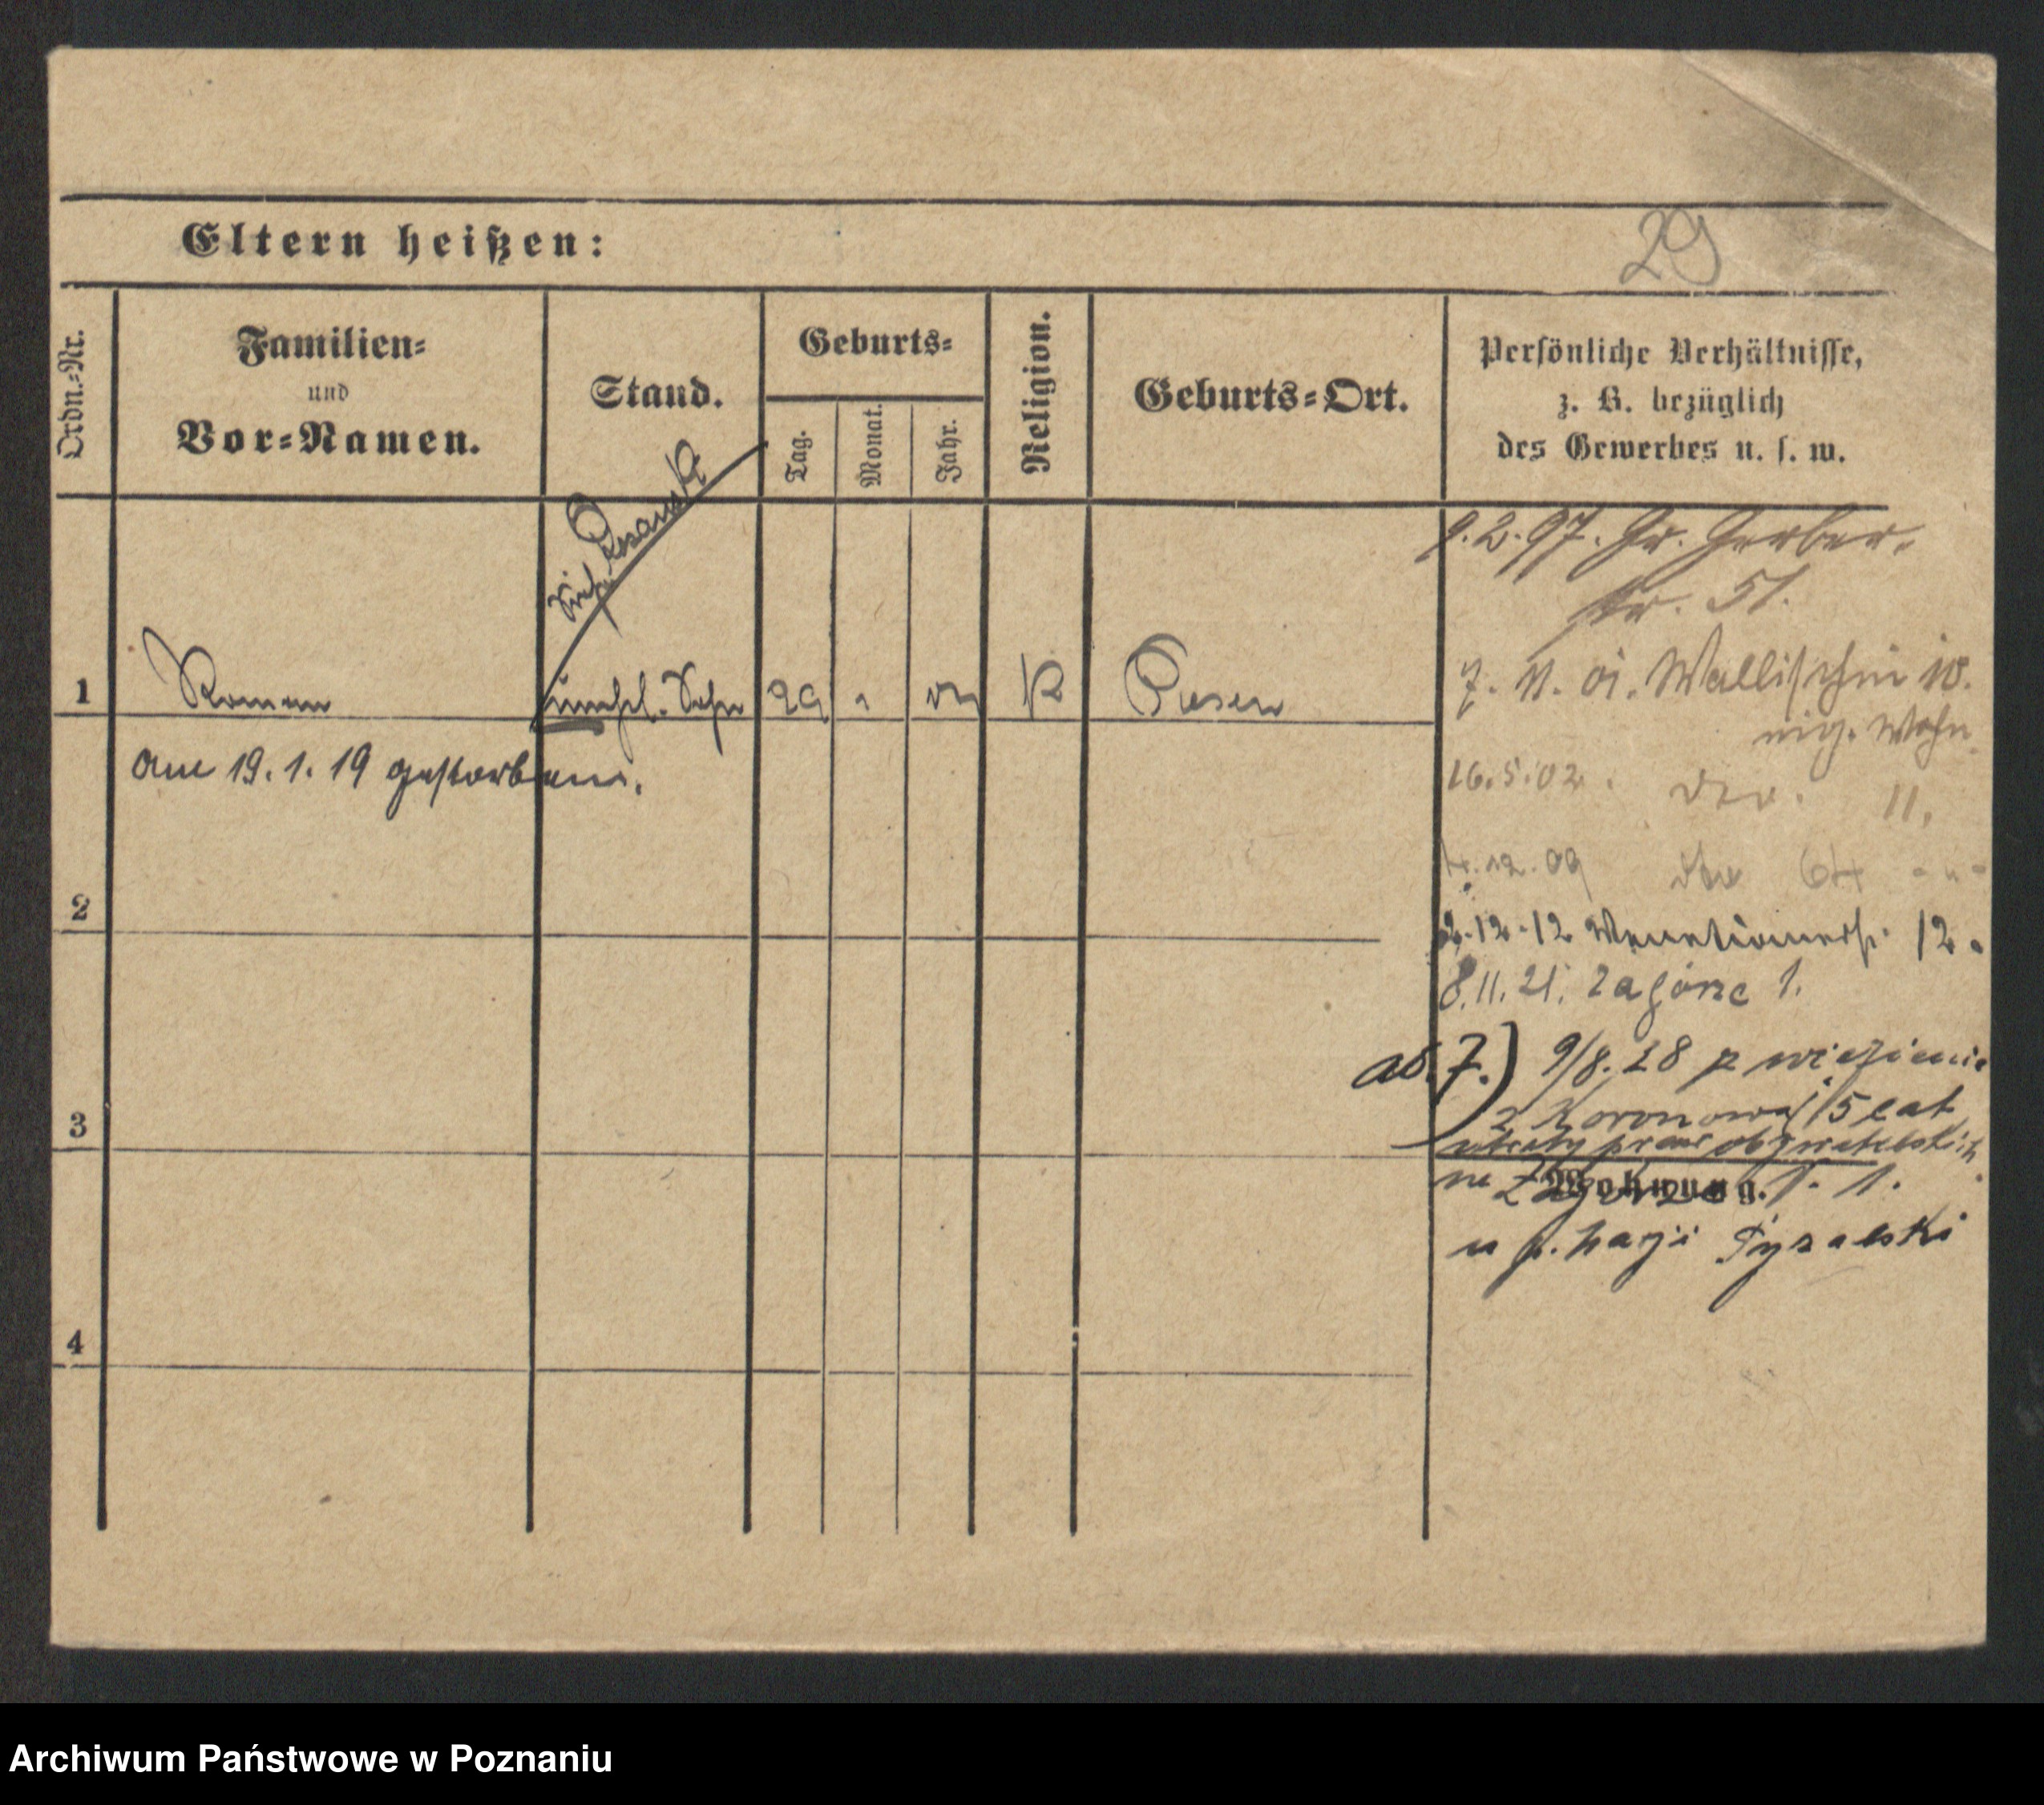 Eltern heißen:
29
Ordn.-Nr.
Familien-
und
Vor-Namen.
Stand.
Geburts-
Tag.
Monat.
Jahr.
Religion.
Geburts-Ort.
Persönliche Verhältnisse,
z. B. bezüglich
des Gewerbes u. s. w.
9.2.97. Gr. Gerber-
str. 51.
1
Roman
unehl. Sohn
29
K
Posen
7. 11. 01. Wallischei 10.
am 19. 1. 19 gestorben.
16.5.02. 11.
12. 09 64
2
2.12.12 Venetianerstr. 12.
8.11.21. Zagórze 1.
ad. 7.) 9/8. 28 z więzienia
3
z Koronowa/ 5 lat
utraty praw obywatelskich
na Zagórze 1.
Wohnung.
u p.
4
Archiwum Państwowe w Poznaniu